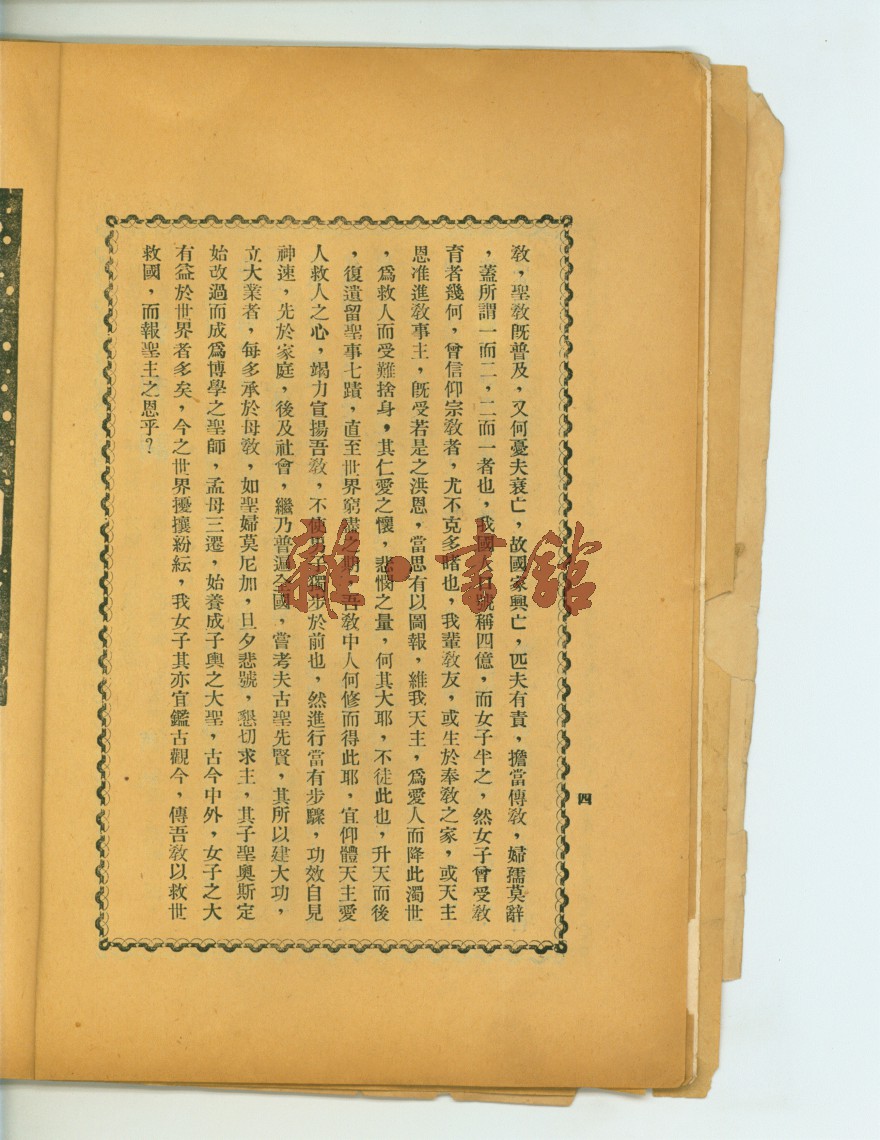 教，聖教旣普及，又何憂夫衰亡，故國家興亡，匹夫有責，擔當傳教，婦孺莫辭
，蓋所謂一而二，二而一者也，我國人口號稱四億，而女子半之，然女子曾受教
育者幾何，曾信仰宗教者，尤不克多睹也，我輩教友，或生於奉教之家，或天主
恩准進教事主，旣受若是之洪恩，當思有以圖報，維我天主，爲愛人而降此濁世
，爲救人而受難捨身，其仁愛之懷，悲憫之量，何其大耶，不徒此也，升天而後
，復遺留聖事七蹟，直至世界窮盡之期，吾教中人何修而得此耶，宜仰體天主愛
人救人之心，竭力宣揚吾教，不使男子獨步於前也，然進行當有步驟，功效自見
神速，先於家庭，後及社會，繼乃普遍全國，嘗考夫古聖先賢，其所以建大功，
立大業者，每多承於母教，如聖婦莫尼加，旦夕悲號，懇切求主，其子聖奧斯定
始改過而成爲博學之聖師，孟母三遷，始養成子輿之大聖，古今中外，女子之大
有益於世界者多矣，今之世界擾攘紛紜，我女子其亦宜鑑古觀今，傳吾教以救世
救國，而報聖主之恩乎？
四
雜·書館